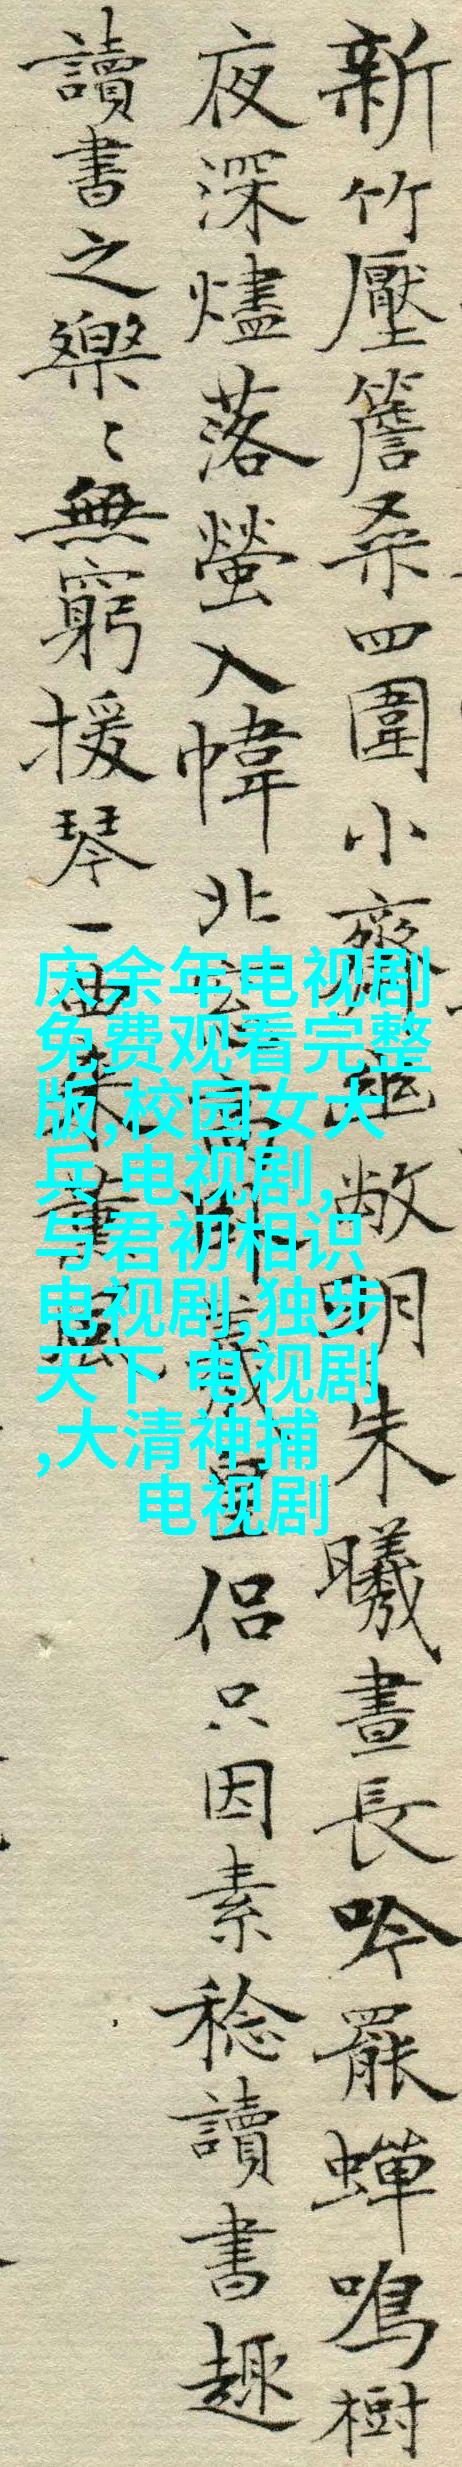 新竹壓簷桑四圍小齋幽敞明朱曦晝長吟罷蟬鳴樹
夜深燼落螢入幃北窗高臥羲皇侶只因素稔讀書趣
讀書之樂〻無窮援琴一曲來薰風
庆余年电视剧
免费观看完整
版,校园女大
兵 电视剧,
与君初相识
电视剧,独步
天下 电视剧
,大清神捕
电视剧